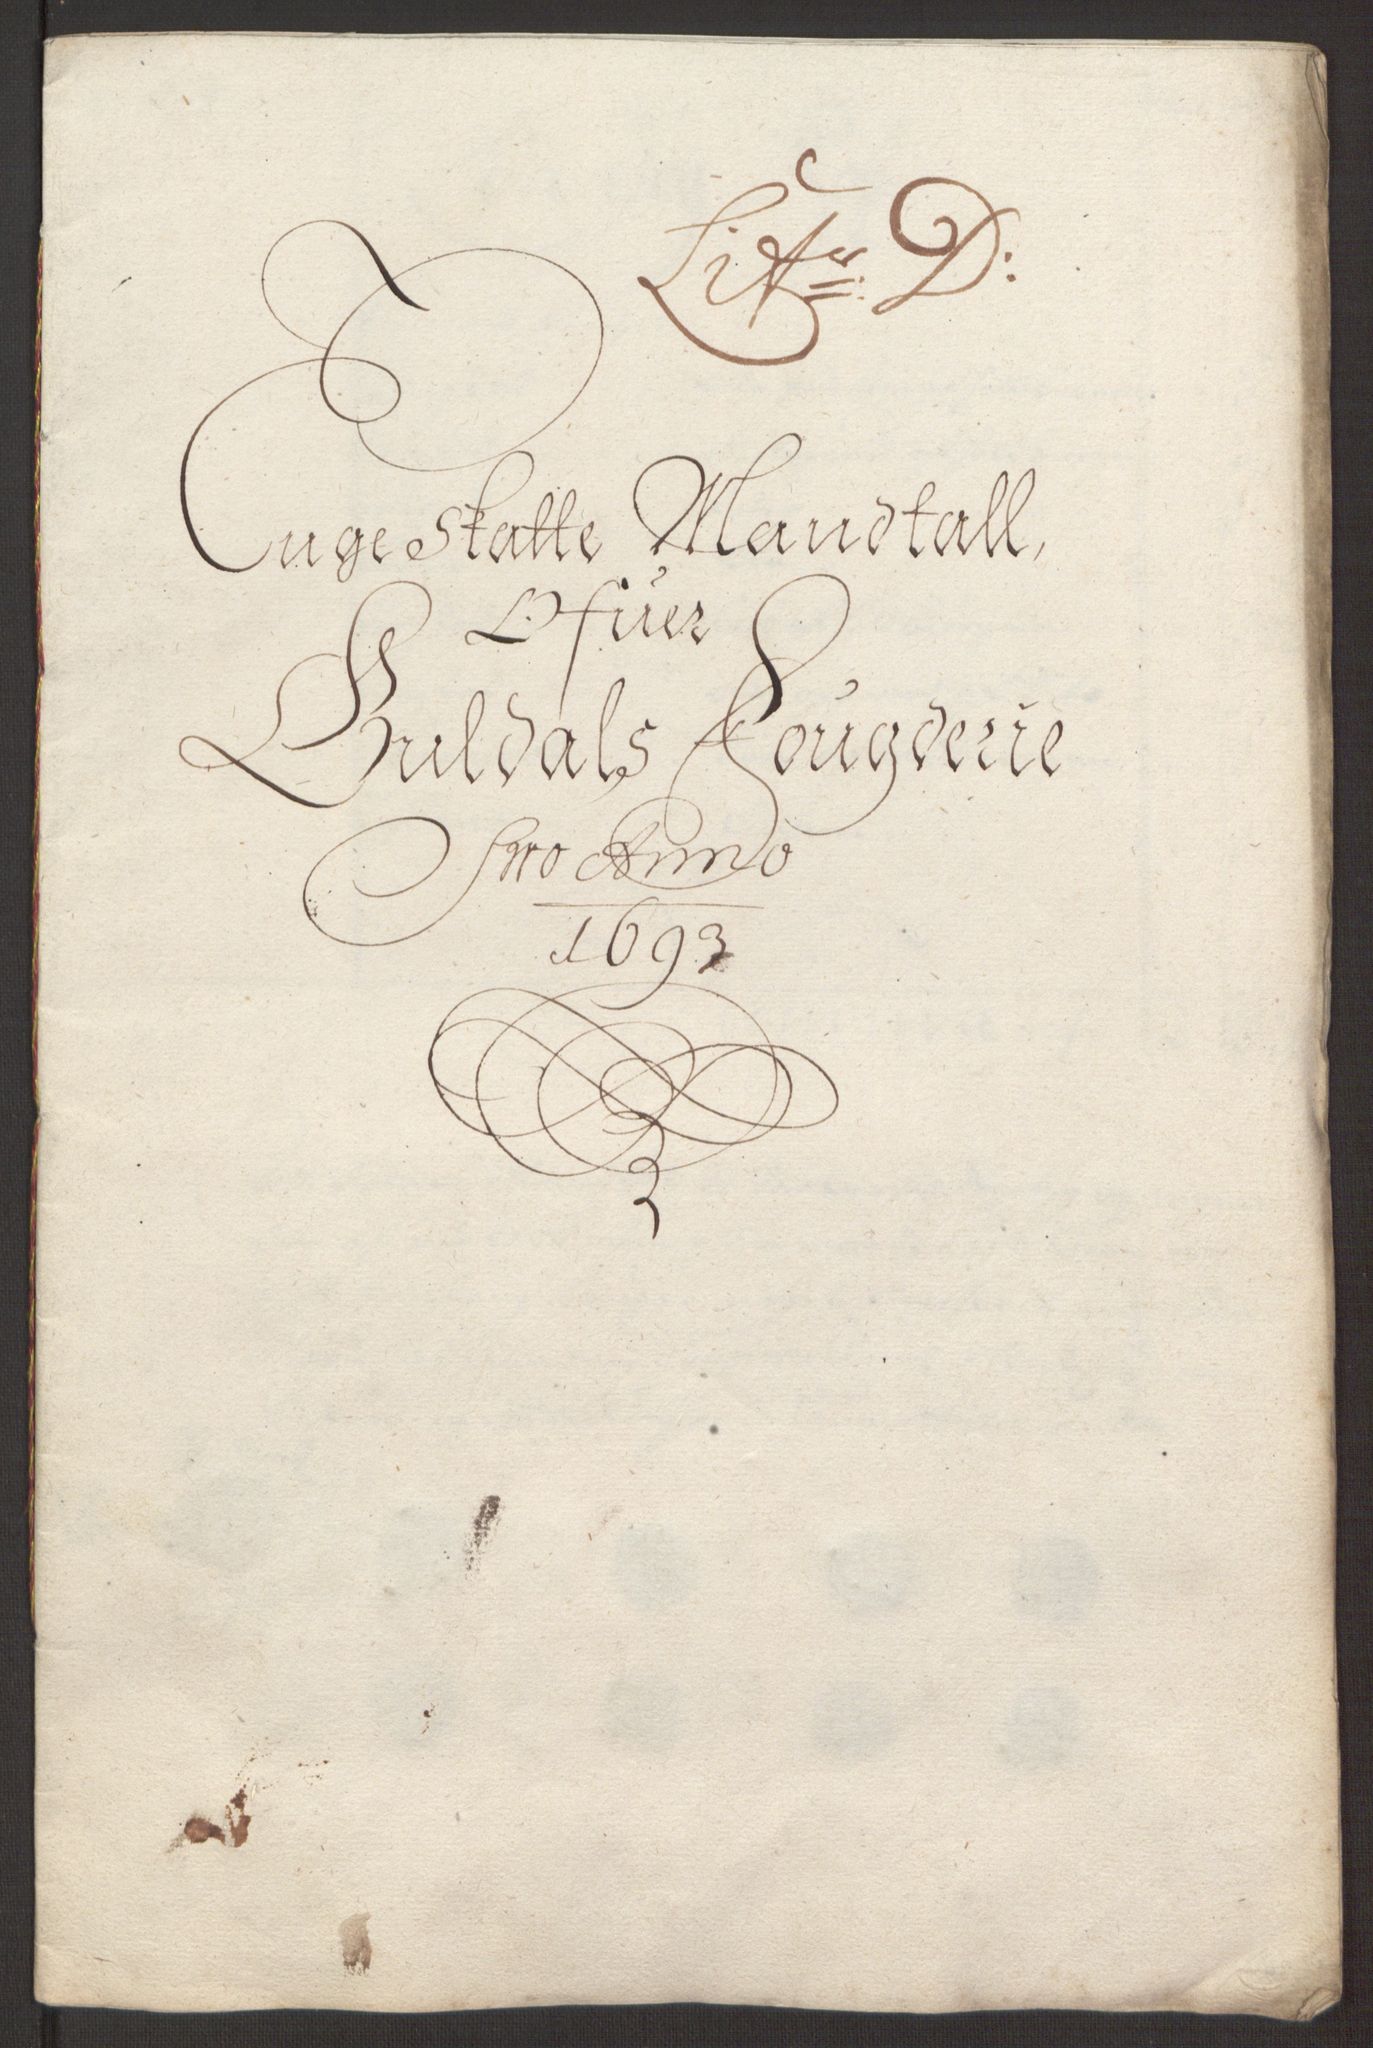 Litr D:
Enge Skatte Mandtall,
Ofúer
Guldals Fougderie
Pro Anno
1693